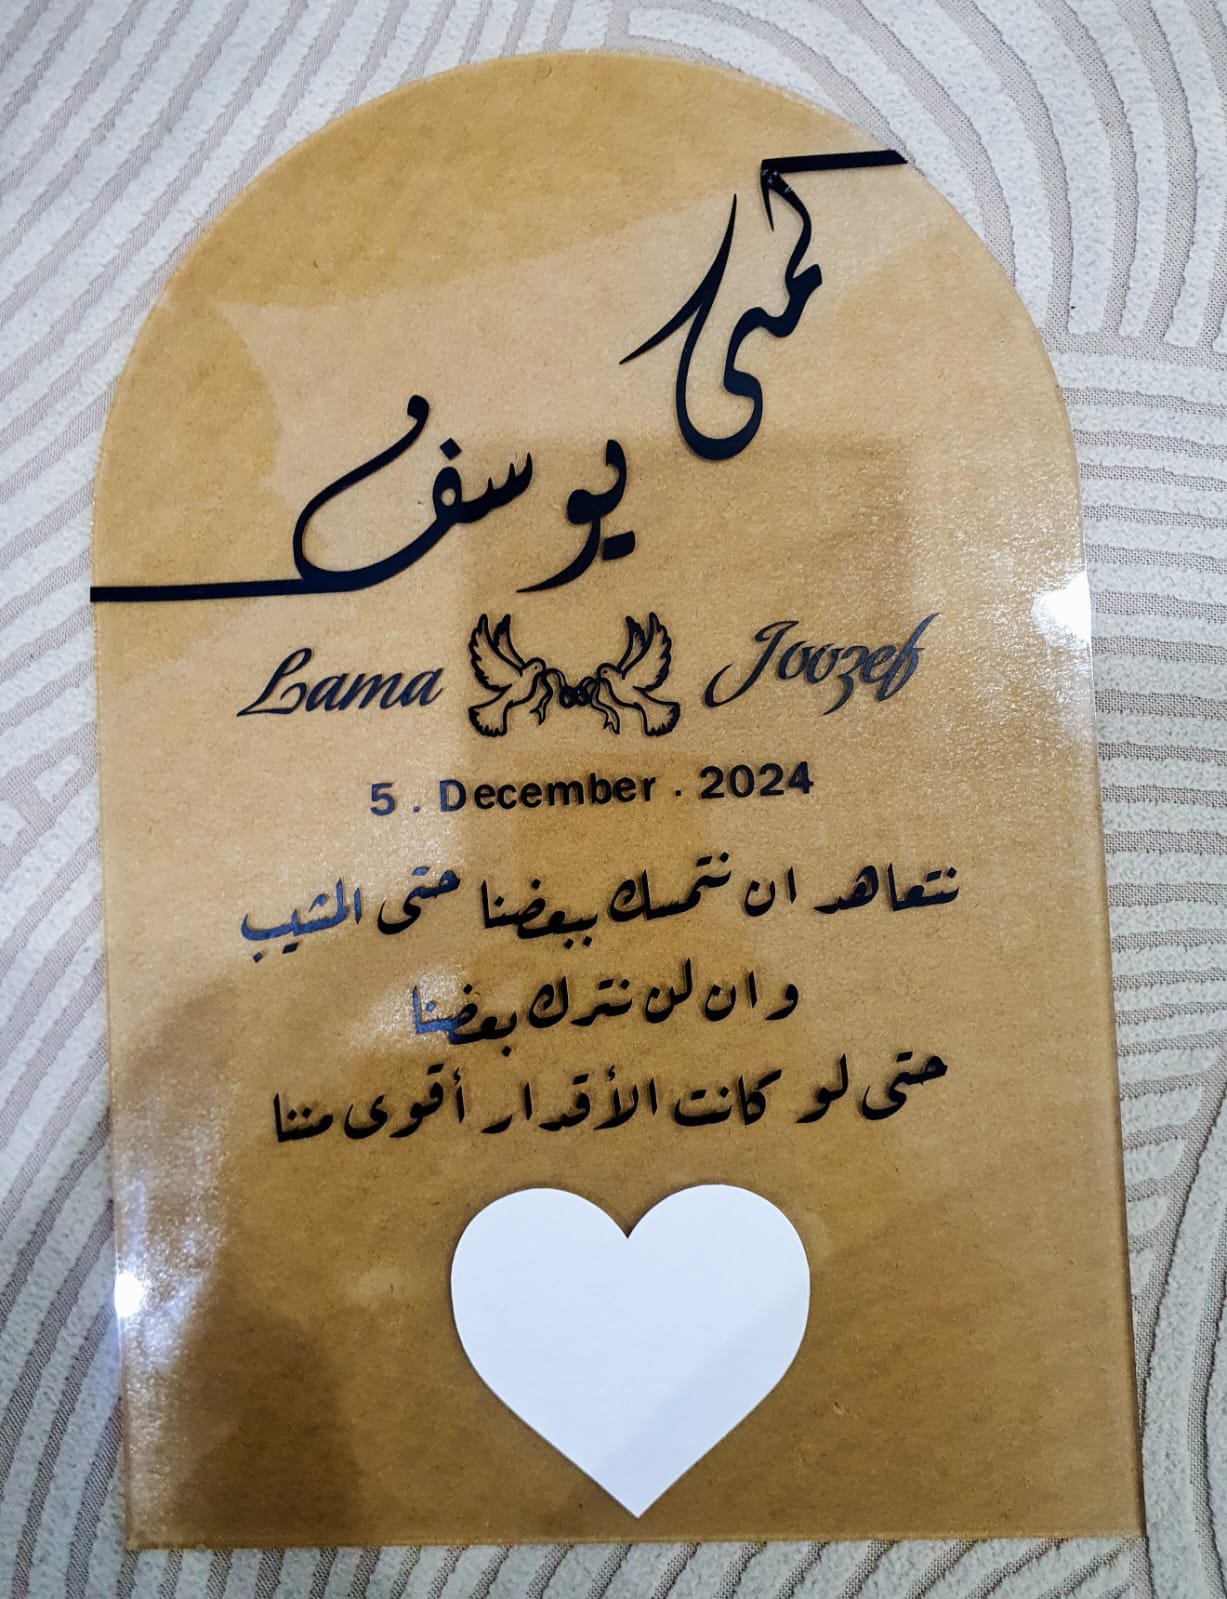 لمى
يوسف
Lama Joozef
5 . December . 2024
نتعاهد ان نتمسك ببعضنا حتى المشيب
و ان لن نترك بعضنا
حتى لو كانت الأقدار أقوى مننا